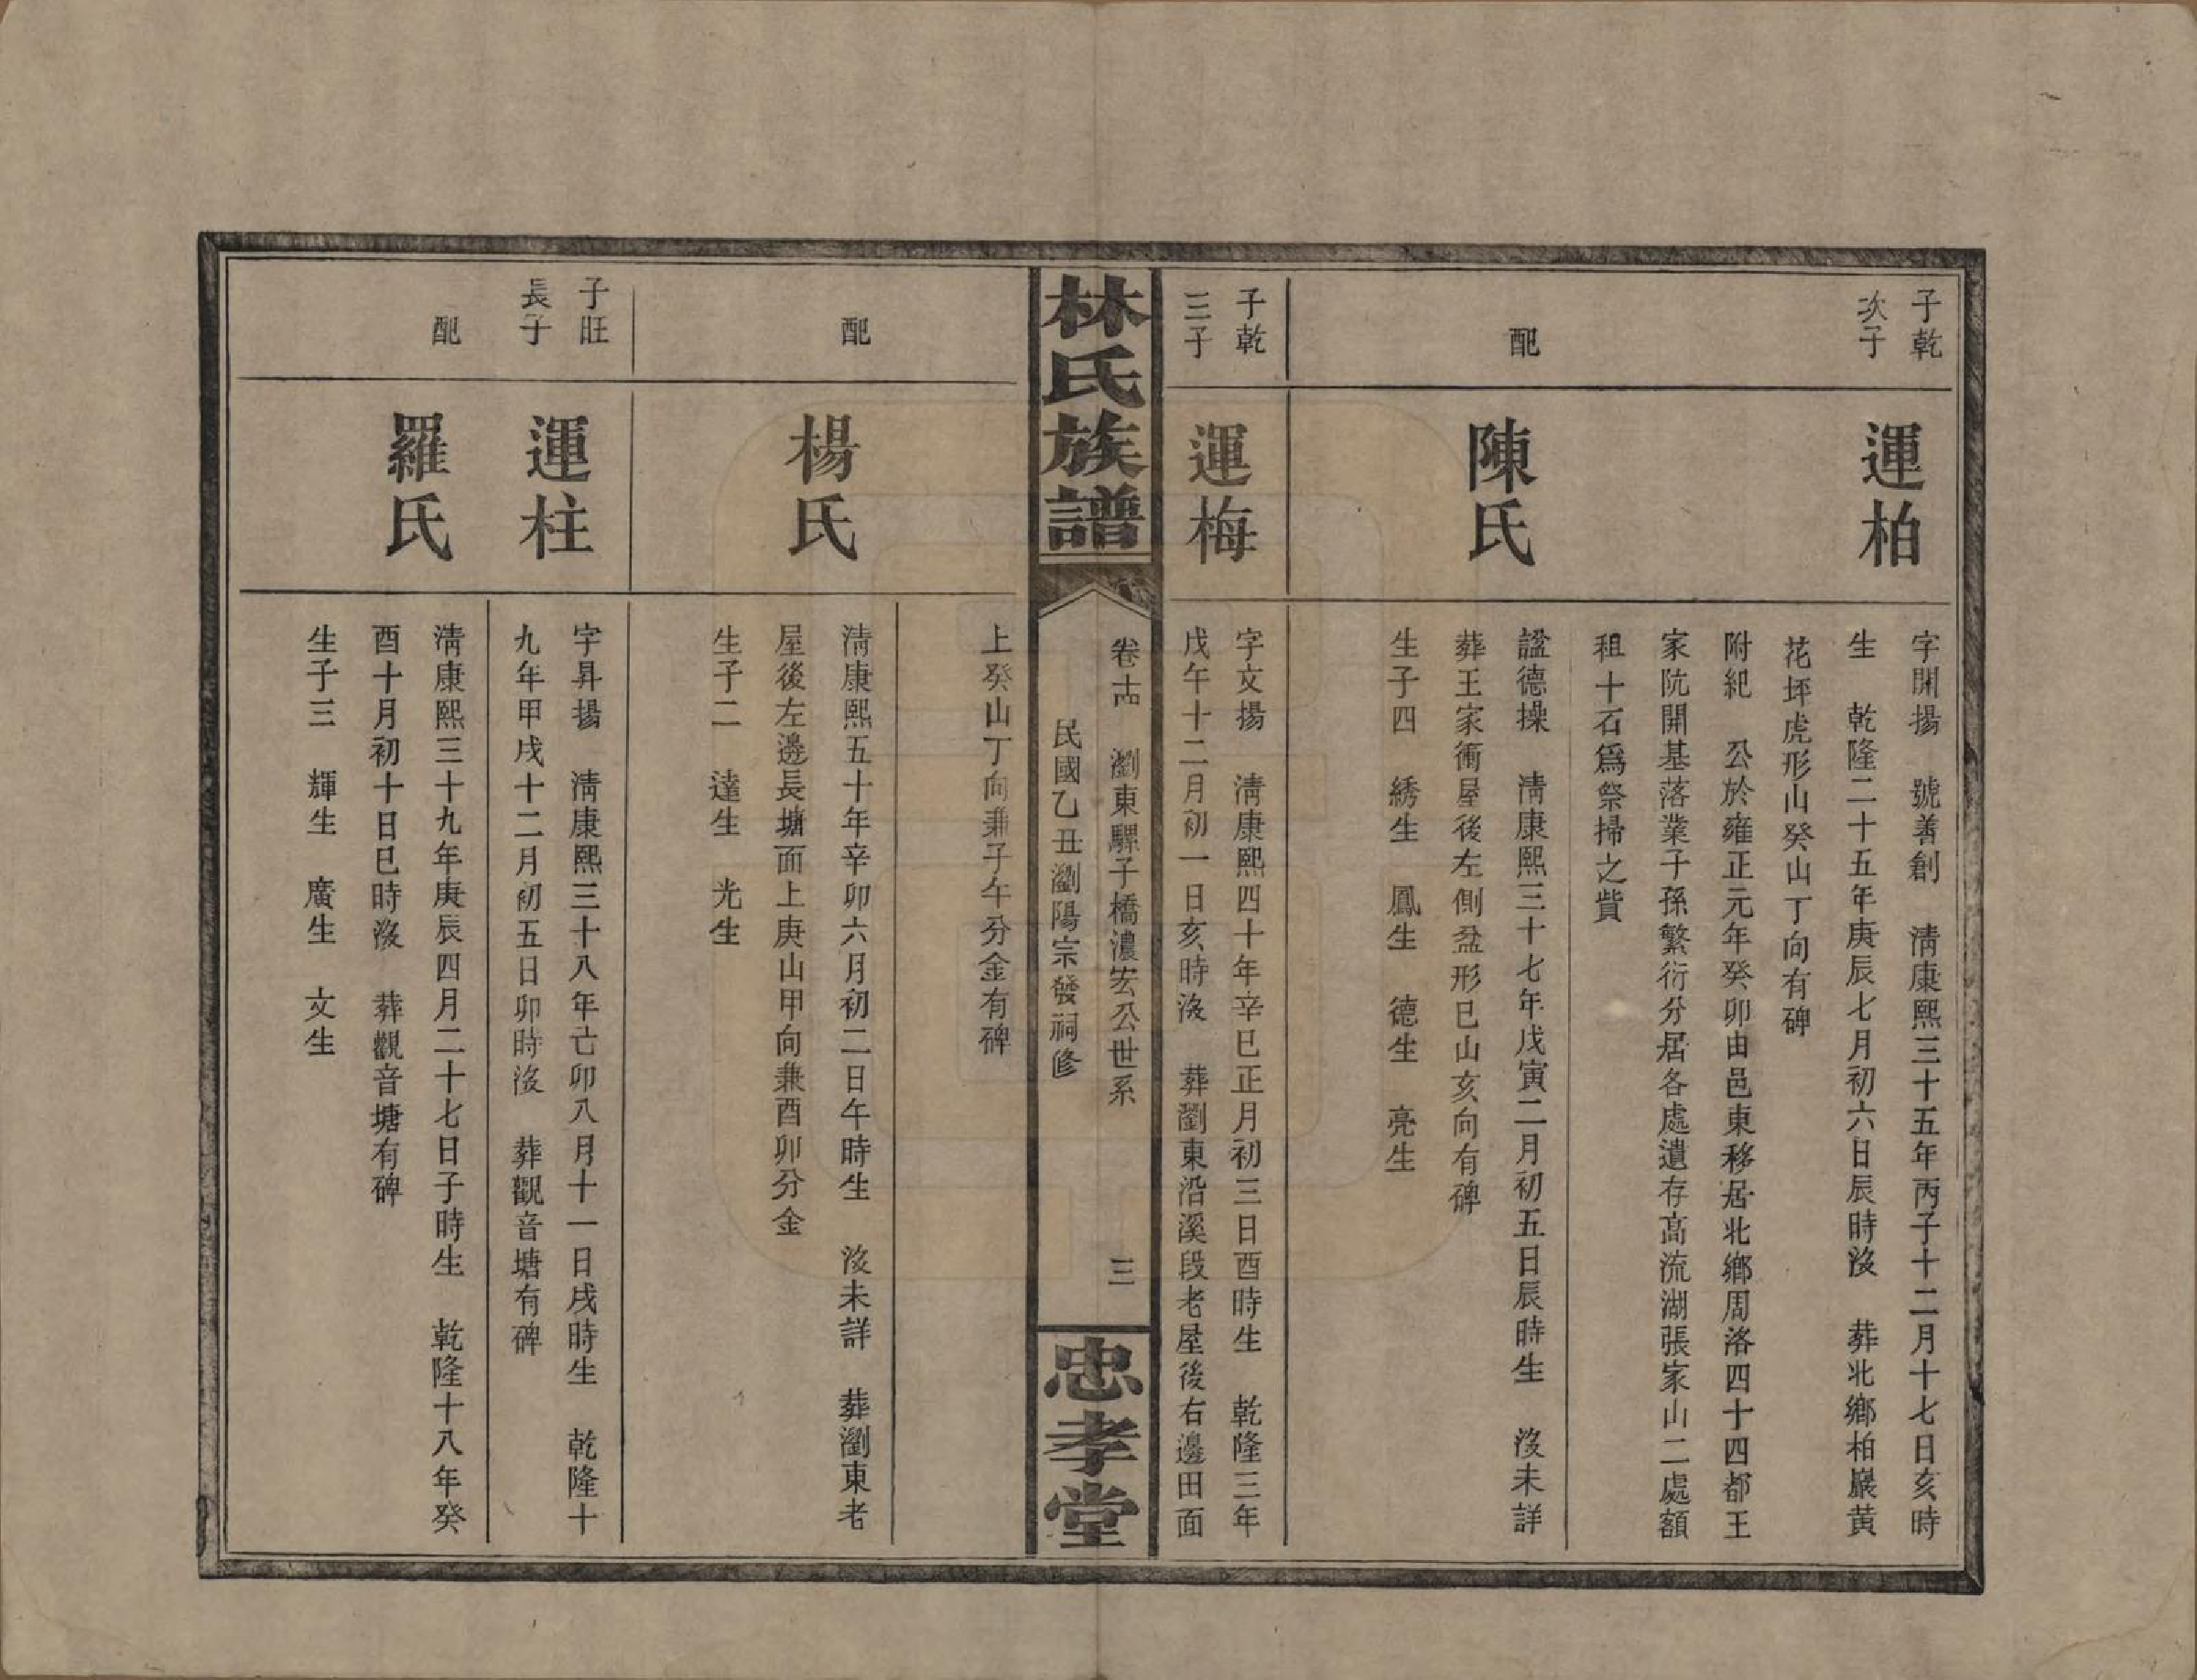 子乾
次子
運柏
字開揚　號善創　清康熙三十五年丙子十二月十七日亥時
生　乾隆二十五年庚辰七月初六日辰時沒　葬北鄉柏巖黃
花坪虎形山癸山丁向有碑
附紀　公於雍正元年癸卯由邑東移居北鄉周洛四十四都王
家阬開基落業子孫繁衍分居各處遺存高流湖張家山二處額
租十石爲祭掃之貲
配
陳氏
諡德操　清康熙三十七年戊寅二月初五日辰時生　沒未詳
葬王家衝屋後左側盆形巳山亥向有碑
生子四　綉生　鳳生　德生　亮生
子乾
三子
運梅
字文揚　清康熙四十年辛巳正月初三日酉時生　乾隆三年
戊午十二月初一日亥時沒　葬瀏東沿溪段老屋後右邊田面
林氏族譜
卷十四　瀏東騾子橋濃宏公世系　三
民國乙丑瀏陽宗發祠修
忠孝堂
上癸山丁向兼子午分金有碑
配
楊氏
清康熙五十年辛卯六月初二日午時生　沒未詳　葬瀏東老
屋後左邊長塘面上庚山甲向兼酉卯分金
生子二　達生　光生
子旺
長子
運柱
字昇揚　清康熙三十八年己卯八月十一日戌時生　乾隆十
九年甲戌十二月初五日卯時沒　葬觀音塘有碑
配
羅氏
清康熙三十九年庚辰四月二十七日子時生　乾隆十八年癸
酉十月初十日巳時沒　葬觀音塘有碑
生子三　輝生　廣生　文生